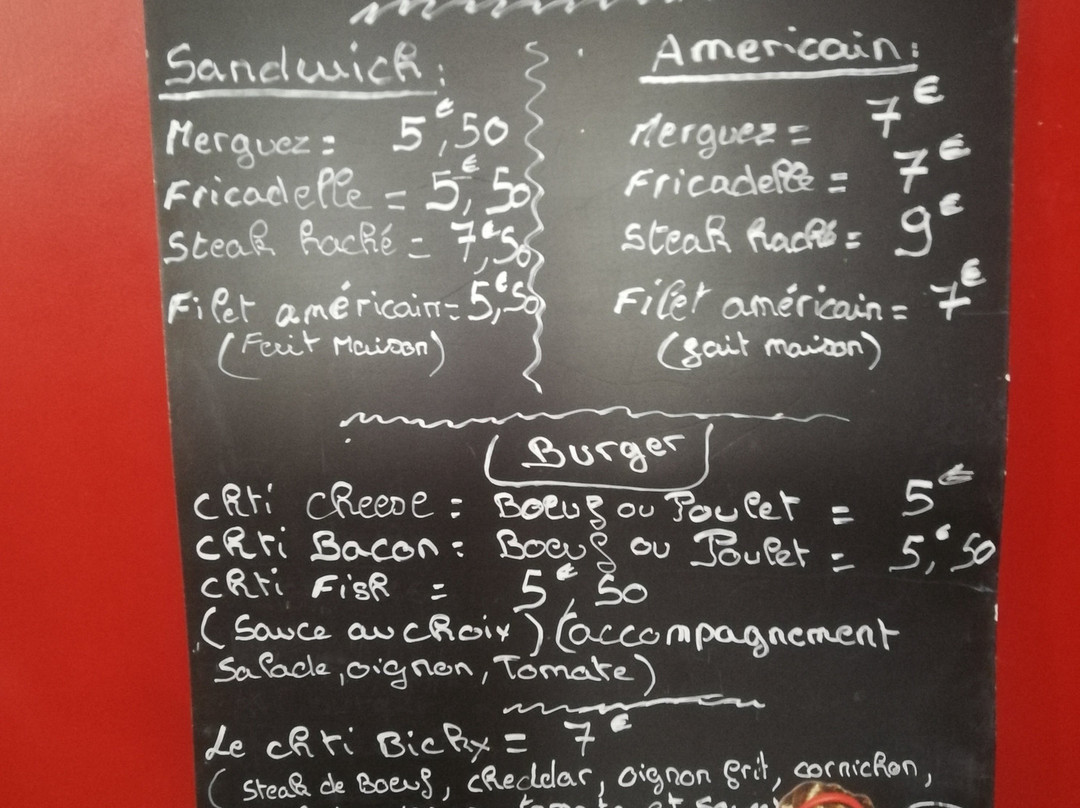 Sandwich:
Merguez = 5€,50
Fricadelle = 5€,50
Steak haché = 7€,50
Filet américain = 5€,50
(Fait Maison)
Americain:
Merguez = 7€
Fricadelle = 7€
Steak haché = 9€
Filet américain = 7€
(fait maison)
Burger
chti cheese = Boeuf ou Poulet = 5€
chti Bacon = Boeuf ou Poulet = 5€,50
chti Fish = 5€,50
(Sauce au choix) (accompagnement
Salade, oignon, Tomate)
Le chti Bicky = 7€
(Steak de Boeuf, cheddar, oignon frit, cornichon,
tomate et